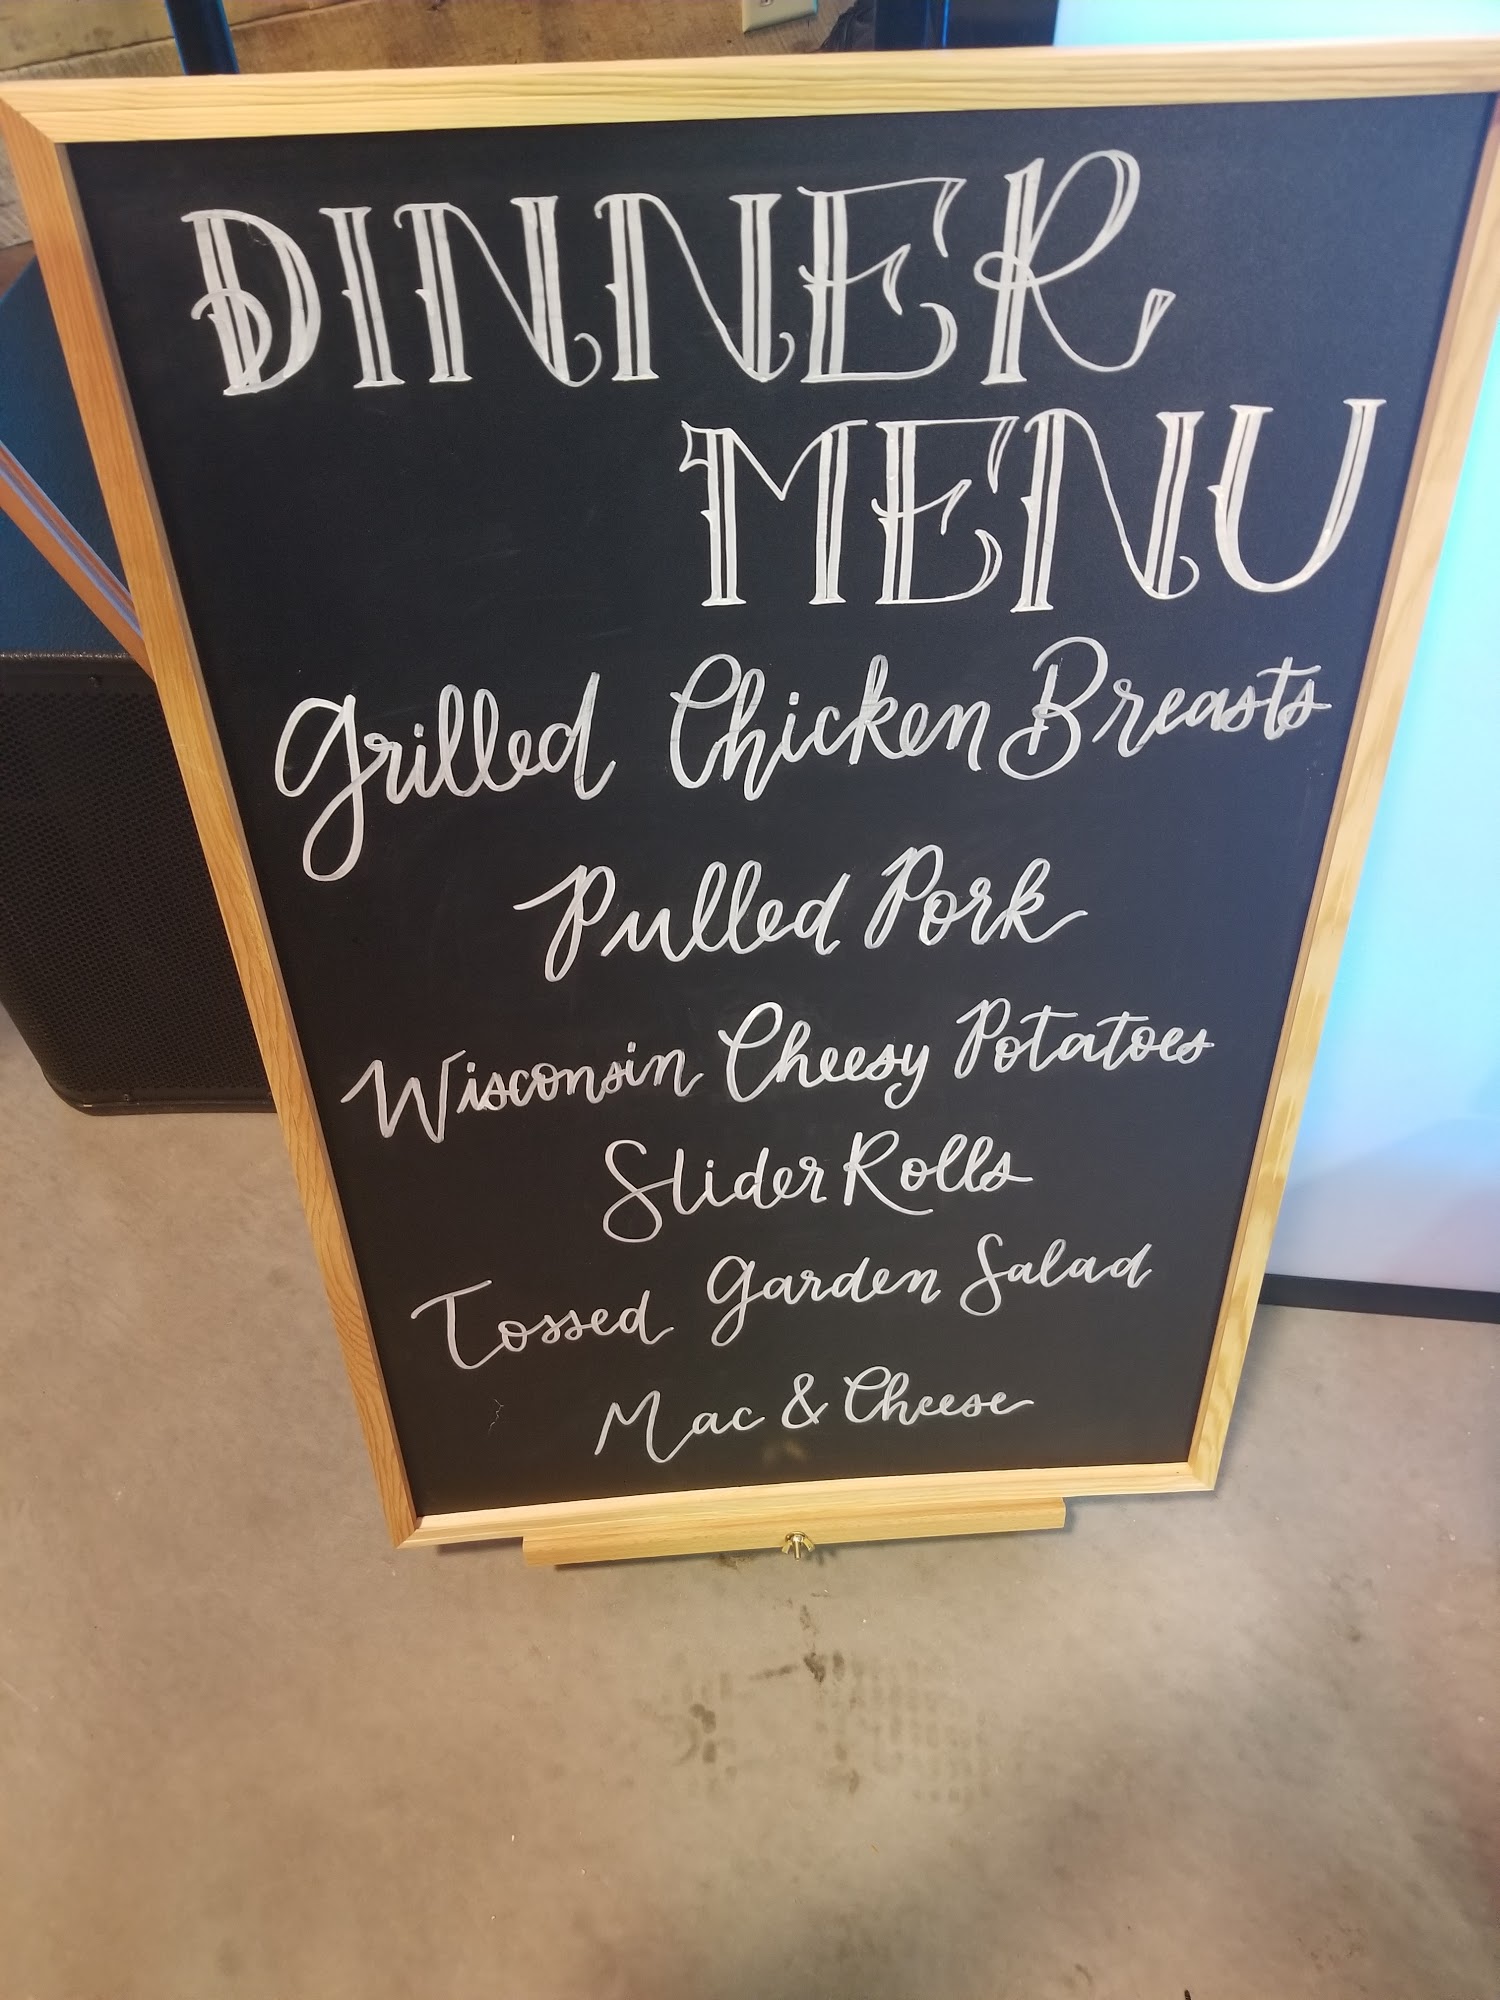 DINNER
MENU
Grilled Chicken Breasts
Pulled Pork
Wisconsin Cheesy Potatoes
Slider Rolls
Tossed Garden Salad
Mac & Cheese